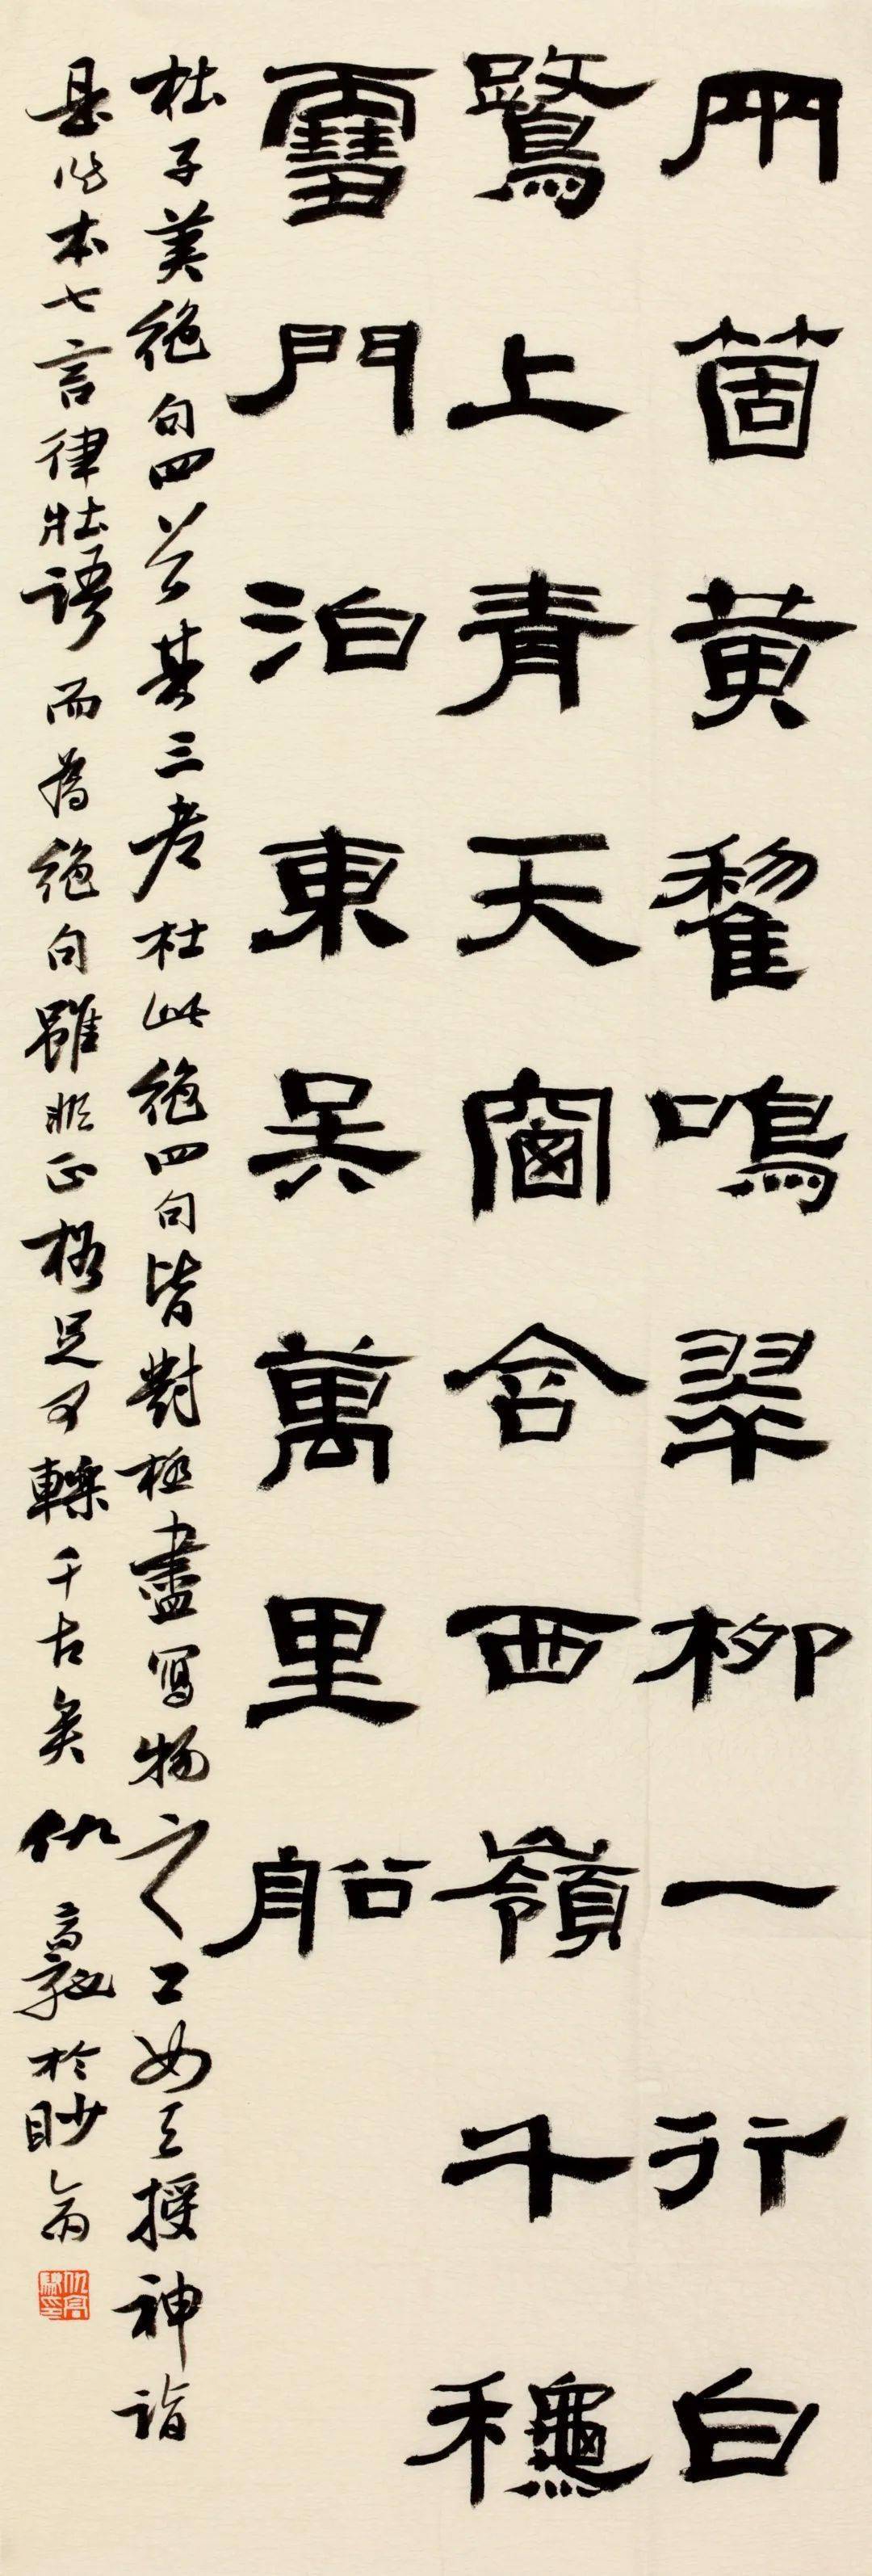 兩箇黄鸝鳴翠柳一行白
鷺上青天窗含西嶺千龝
雪門泊東吳萬里船
杜子美絕句四首其三老杜此絕四句皆對極盡寫物之工如天授神詣
是作本七言律壯語而為絕句雖非正格足可轢千古矣 仇高於眇